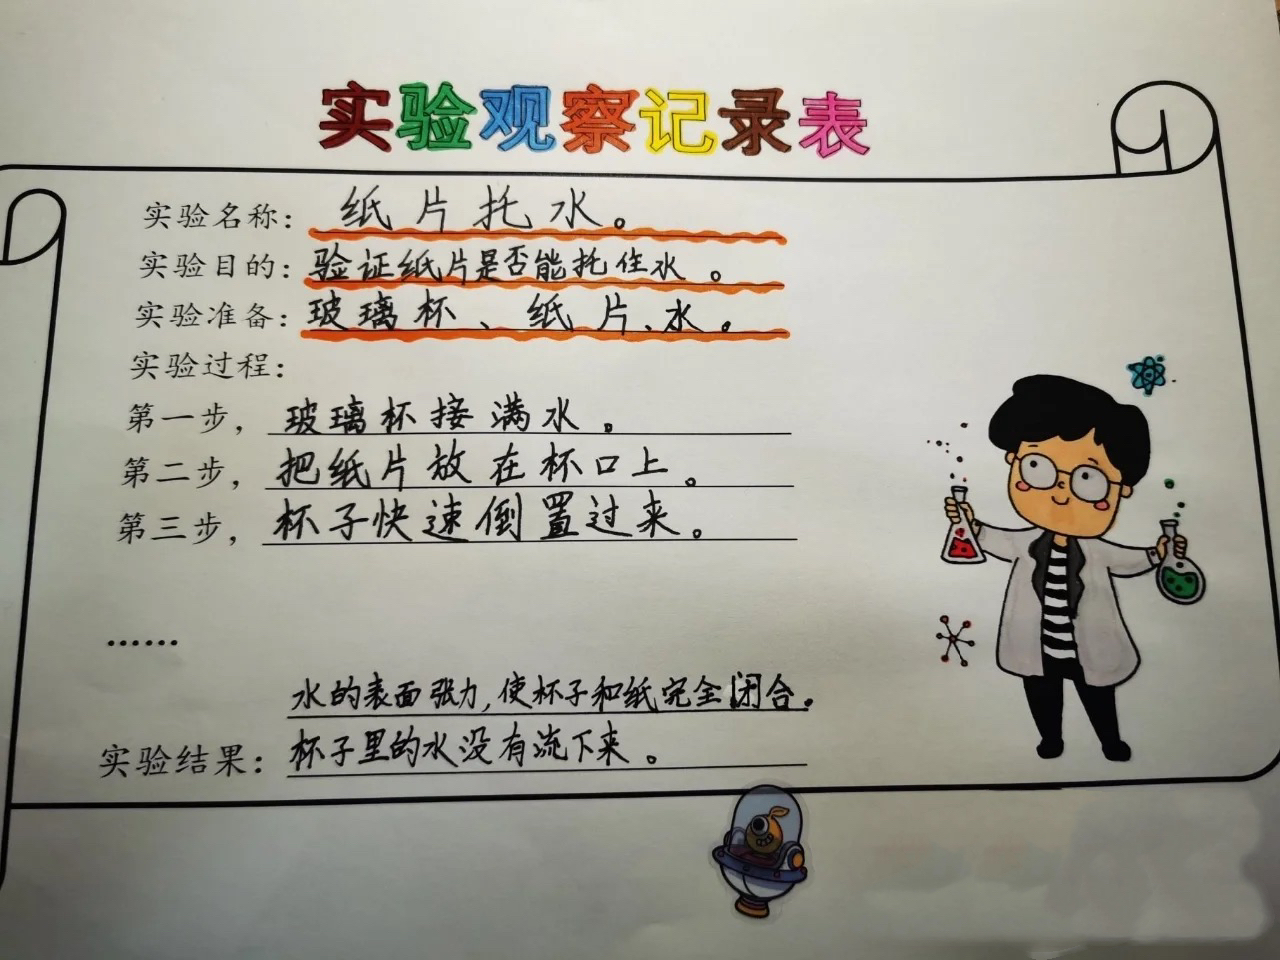 实验观察记录表
实验名称：纸片托水。
实验目的：验证纸片是否能托住水。
实验准备：玻璃杯、纸片、水。
实验过程：
第一步，玻璃杯接满水。
第二步，把纸片放在杯口上。
第三步，杯子快速倒置过来。
……
水的表面张力，使杯子和纸完全闭合。
实验结果：杯子里的水没有流下来。